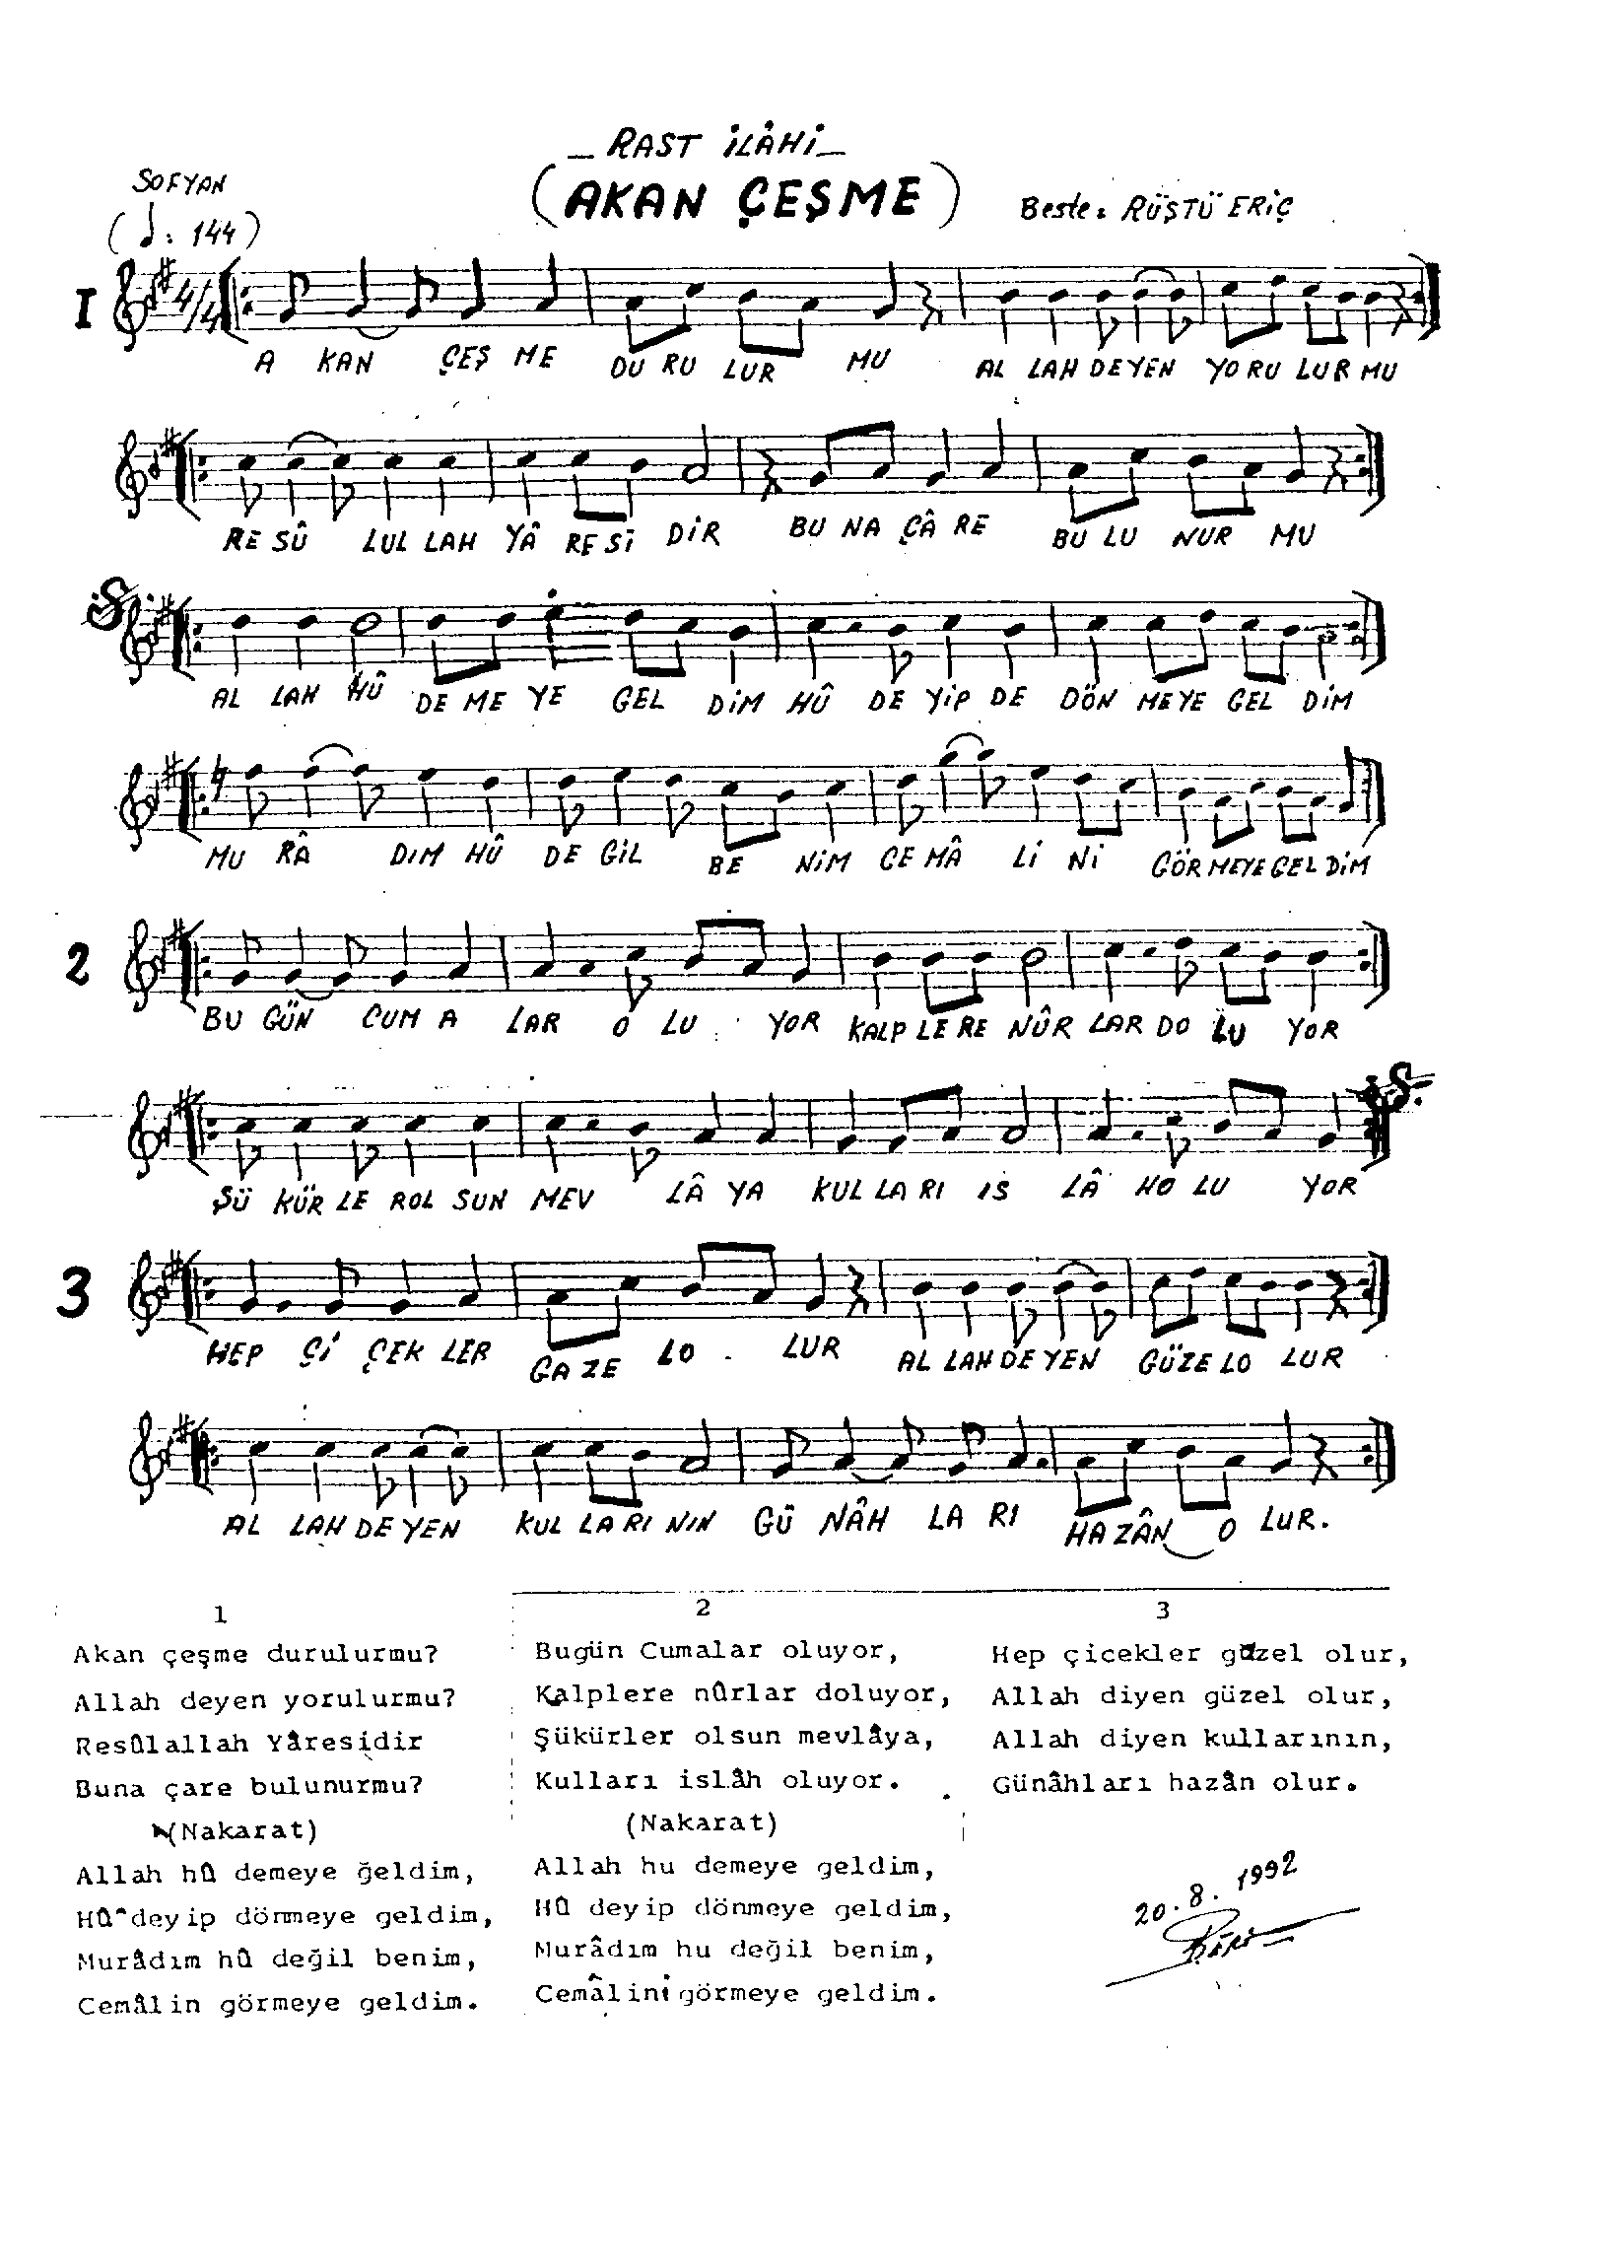 _ RAST İLÂHİ _
SOFYAN
(AKAN ÇEŞME)
Beste: RÜŞTÜ ERİÇ
(♩: 144)
I
4/4
A KAN ÇEŞ ME DU RU LUR MU AL LAH DE YEN YO RU LUR MU
RE SÛ LUL LAH YÂ RE Sİ DİR BU NA ÇÂ RE BU LU NUR MU
AL LAH HÛ DE ME YE GEL DİM HÛ DE YİP DE DÖN ME YE GEL DİM
MU RÂ DIM HÛ DE GİL BE NİM CE MÂ Lİ Nİ GÖR MEYE GEL DİM
2
BU GÜN CUM A LAR O LU YOR KALP LE RE NÛR LAR DO LU YOR
ŞÜ KÜR LE ROL SUN MEV LÂ YA KUL LA RI IS LÂ HO LU YOR
3
HEP Çİ ÇEK LER GA ZE LO . LUR AL LAH DE YEN GÜZE LO LUR
AL LAH DE YEN KUL LA RI NIN GÜ NÂH LA RI HA ZÂN O LUR.
1
Akan çeşme durulurmu?
Allah deyen yorulurmu?
Resûlallah Yâresidir
Buna çare bulunurmu?
(Nakarat)
Allah hû demeye ğeldim,
Hû deyip dönmeye geldim,
Murâdım hû değil benim,
Cemâlin görmeye geldim.
2
Bugün Cumalar oluyor,
Kalplere nûrlar doluyor,
Şükürler olsun mevlâya,
Kulları islâh oluyor.
(Nakarat)
Allah hu demeye geldim,
Hû deyip dönmeye geldim,
Murâdım hu değil benim,
Cemâlini görmeye geldim.
3
Hep çicekler güzel olur,
Allah diyen güzel olur,
Allah diyen kullarının,
Günâhları hazân olur.
20.8.1992